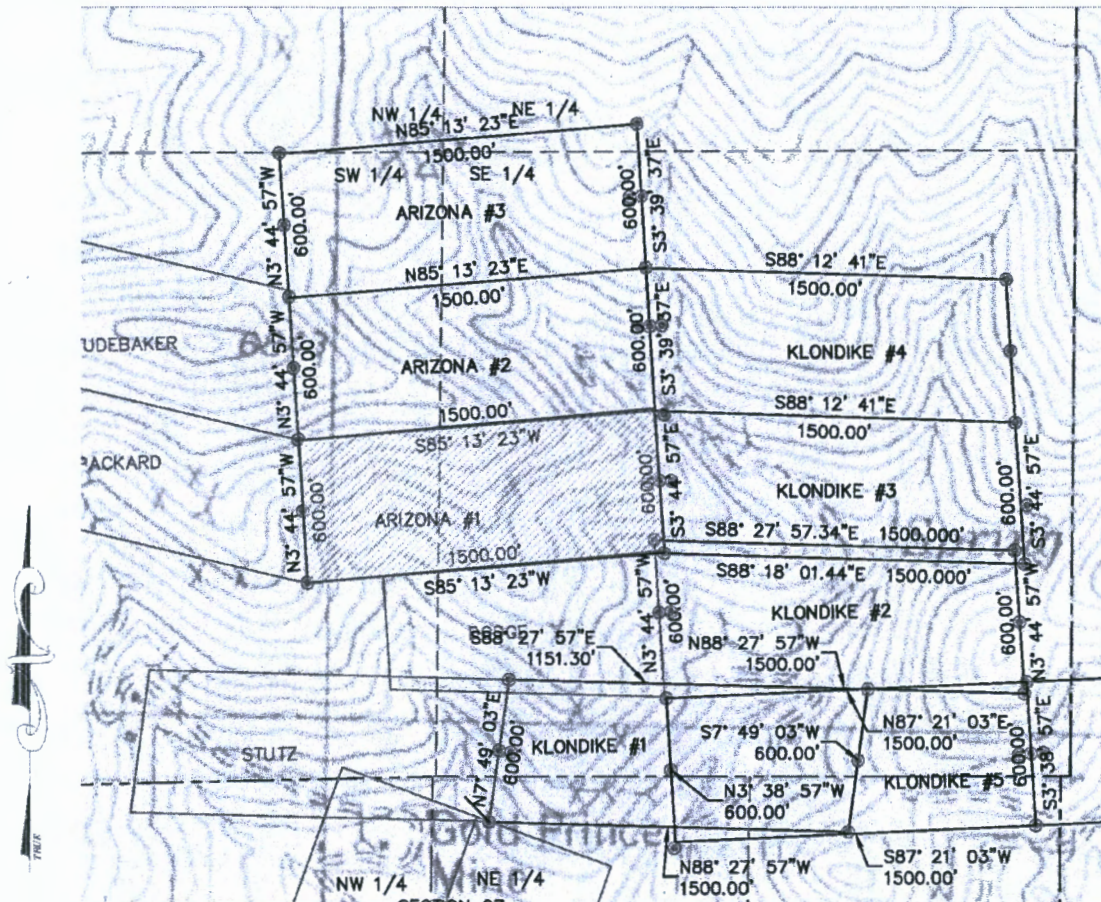 NW 1/4 NE 1/4
N85° 13' 23"E
1500.00'
SW 1/4 SE 1/4
N3° 44' 57"W
600.00'
ARIZONA #3
600.00'
S3° 39' 37"E
N85° 13' 23"E
1500.00'
S88° 12' 41"E
1500.00'
UDEBAKER
N3° 44' 57"W
600.00'
ARIZONA #2
600.00'
S3° 39' 37"E
KLONDIKE #4
1500.00'
S85° 13' 23"W
S88° 12' 41"E
1500.00'
PACKARD
N3° 44' 57"W
600.00'
ARIZONA #1
600.00'
S3° 44' 57"E
KLONDIKE #3
600.00'
S3° 44' 57"E
1500.00'
S85° 13' 23"W
S88° 27' 57.34"E 1500.000'
S88° 18' 01.44"E 1500.000'
N3° 44' 57"W
600.00'
KLONDIKE #2
600.00'
N3° 44' 57"W
DODGE
S88° 27' 57"E
1151.30'
N88° 27' 57"W
1500.00'
STUTZ
N7° 49' 03"E
600.00'
KLONDIKE #1
S7° 49' 03"W
600.00'
N87° 21' 03"E
1500.00'
KLONDIKE #5
600.00'
S3° 38' 57"E
N3° 38' 57"W
600.00'
Gold Prince
N88° 27' 57"W
1500.00'
S87° 21' 03"W
1500.00'
NW 1/4 NE 1/4
TRUE